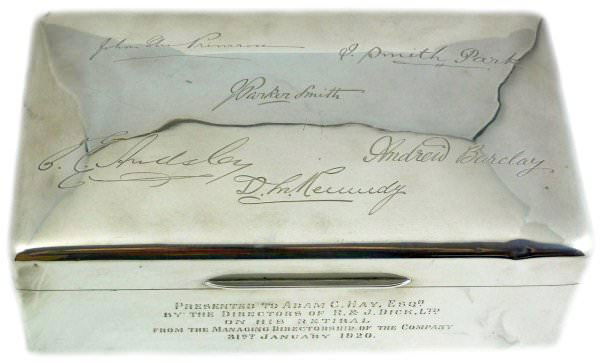 John Ure Primrose
J. Smith Park
J Parker Smith
Andrew Barclay
D. M. Kennedy
PRESENTED TO ADAM C. HAY, ESQR
BY THE DIRECTORS OF R. & J. DICK, LTD
ON HIS RETIRAL
FROM THE MANAGING DIRECTORSHIP OF THE COMPANY
31ST JANUARY 1920.